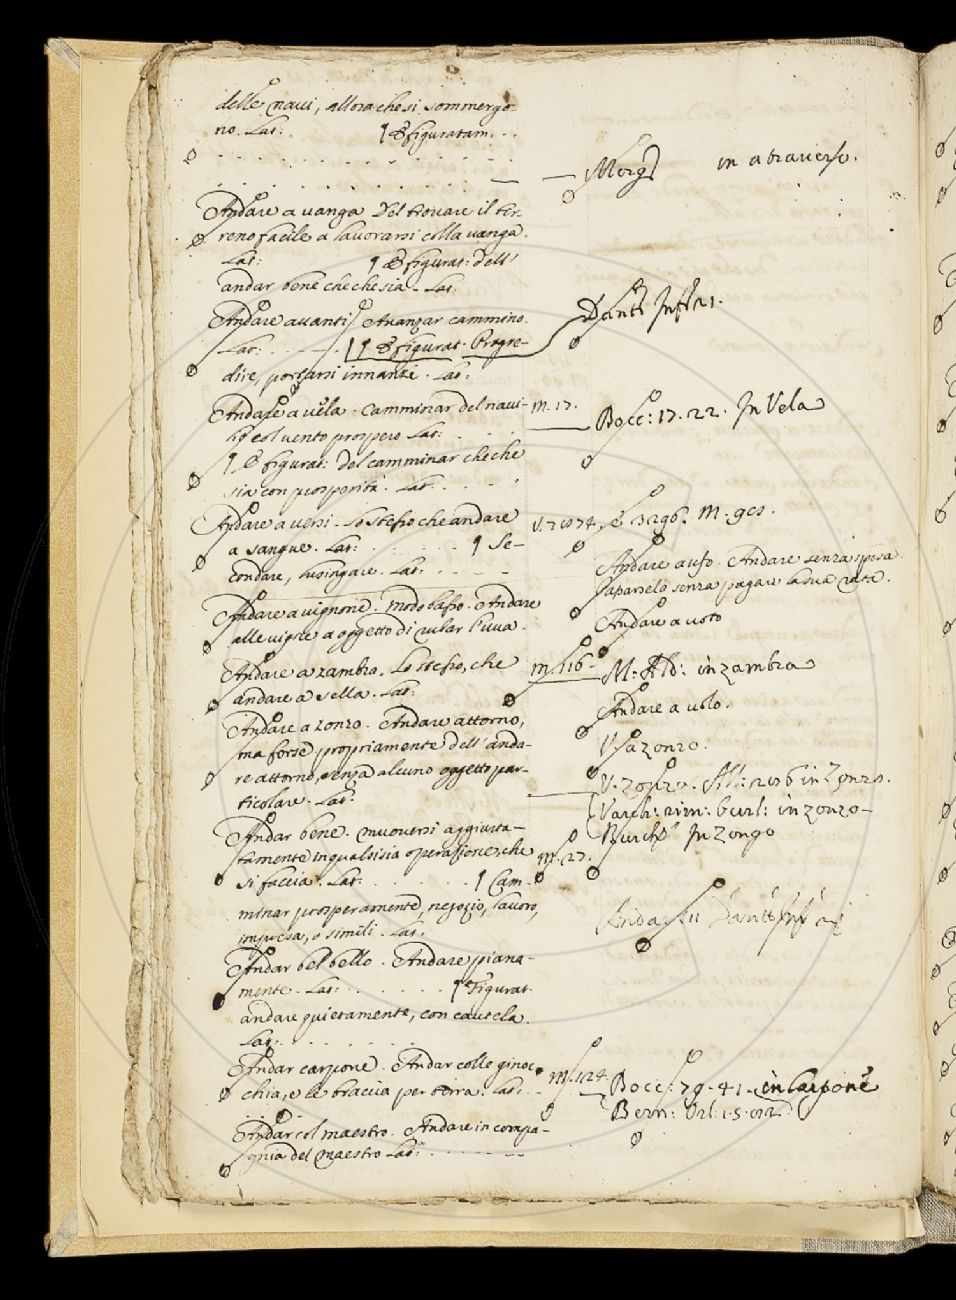 delle navi, allora che si sommergo-
no. Lat: ¶ E figuratam. . .
Andare a vanga Del trovare il ter-
reno facile a lavorarsi colla vanga.
Lat: ¶ E figurat: dell'
andar bene checchesia. Lat.
Andare avanti. Avanzar cammino.
Lat: ¶ E figurat. Progre-
dire, portarsi innanzi. Lat:
Andare a vela. Camminar del navi-
lio col vento prospero Lat:
¶ E figurat: del camminar che che
sia con prosperità. Lat.
Andare a versi. Lo stesso che andare
a sangue. Lat: ¶ Se-
condare, lusingare. Lat:
Andare a vignone. modo basso. Andare
alle vigne a oggetto di rubar l'uva.
Andare a zambra. Lo stesso, che
andare a sella. Lat:
Andare a zonzo. Andare attorno,
ma forse propriamente dell'anda-
re attorno, senza alcuno oggetto par-
ticolare. Lat:
Andar bene. muoversi aggiusta-
tamente in qualsisia operazione, che
si faccia. Lat. ¶ Cam-
minar prosperamente, negozio, lavoro,
impresa, o simili. Lat:
Andar bel bello. Andare piana-
mente. Lat: ¶ Figurat.
andare quietamente, con cautela.
Lat:
Andar carpone. Andar colle ginoc-
chia, e le braccia per terra. Lat:
Andar col maestro. Andare in compa-
gnia del maestro Lat:
Morg. in a traverso.
Dant: Inf: 21.
m. 17. Bocc: 17. 22. In Vela
Andare a ufo. Andare senza spesa
senza pagare la sua rata.
Andare a voto
m. 116 - M. Ald: in zambra
Andare a volo.
V. a zonzo.
in Zonzo.
Varch: rim: burl: in zonzo-
Burch: In Zongo
m. 27.
m. 124 Bocc: 79. 41. in Carpone
Bern: Orl: 1. 5.